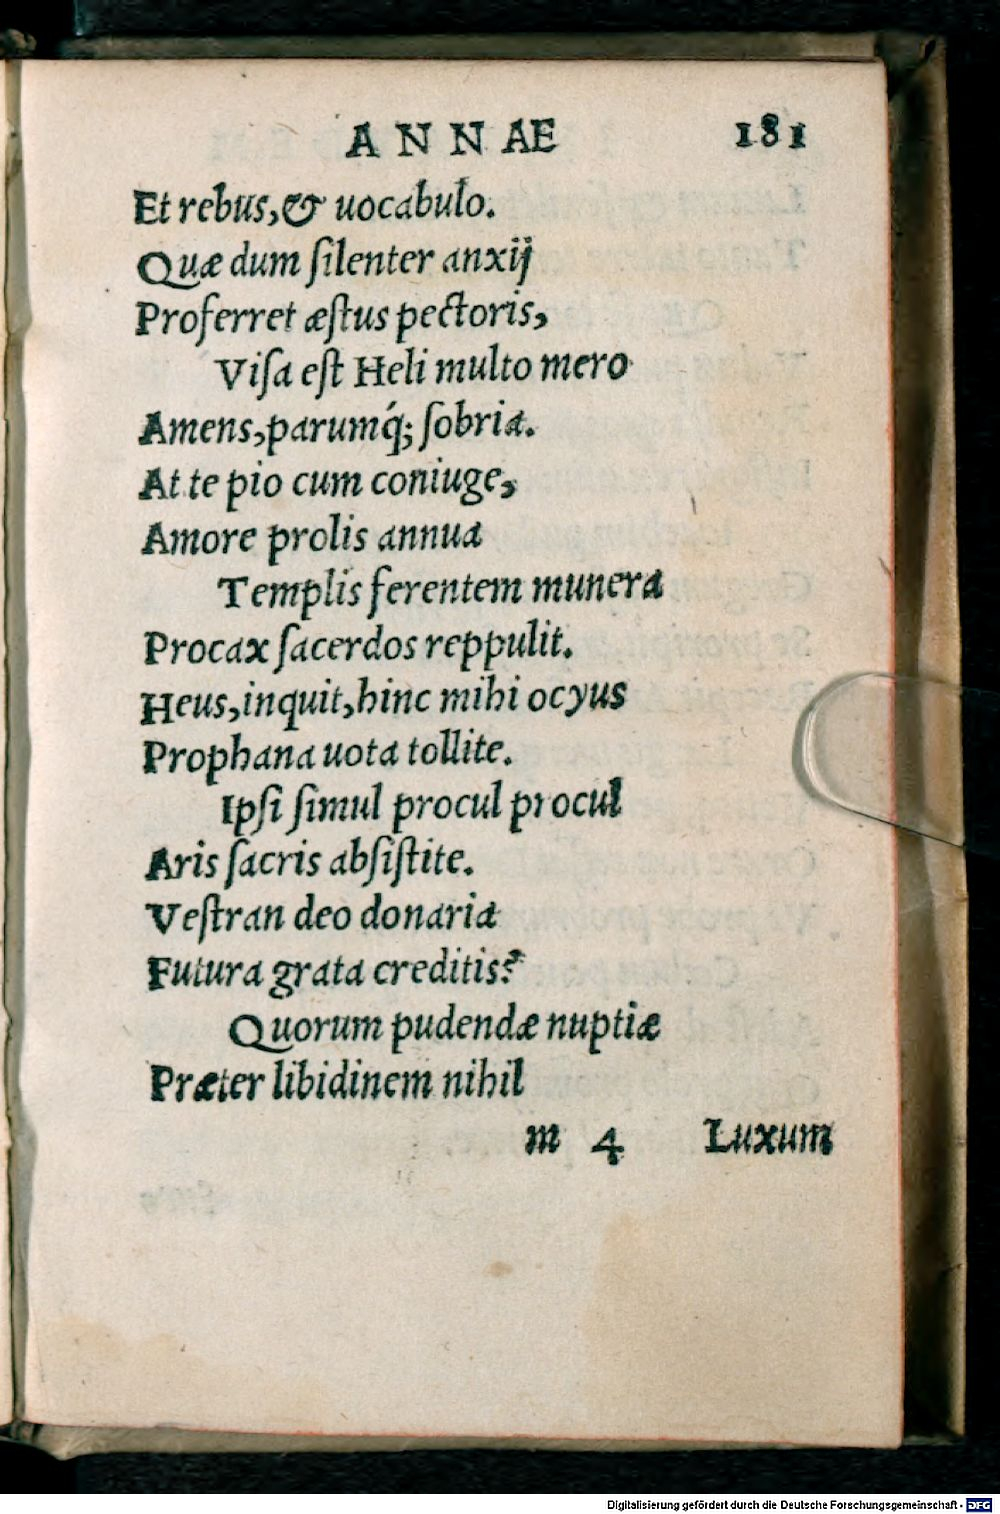 ANNAE 181
Et rebus, & uocabulo.
Quæ dum ſilenter anxij
Proferret æſtus pectoris,
Viſa eſt Heli multo mero
Amens, parumq́; ſobria.
At te pio cum coniuge,
Amore prolis annua
Templis ferentem munera
Procax ſacerdos reppulit.
Heus, inquit, hinc mihi ocyus
Prophana uota tollite.
Ipſi ſimul procul procul
Aris ſacris abſiſtite.
Veſtran deo donaria
Futura grata creditis?
Quorum pudendæ nuptiæ
Præter libidinem nihil
m 4 Luxum
Digitalisierung gefördert durch die Deutsche Forschungsgemeinschaft - DFG